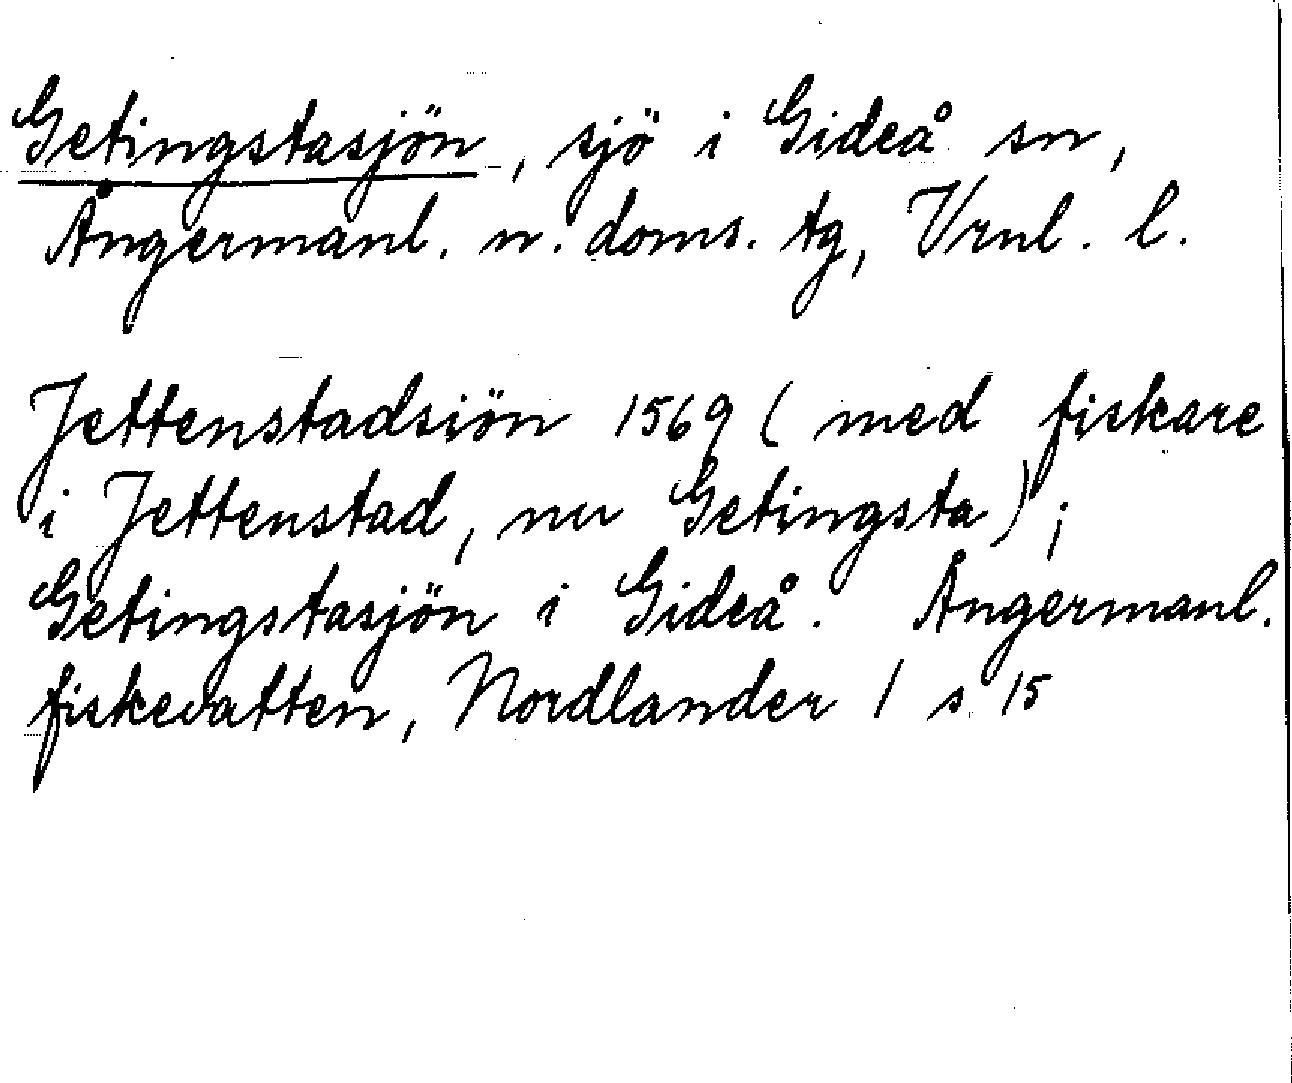 Getingstasjön, sjö i Gideå sn,
Ångermanl. n. doms. tg, Vrnl. l.
Jettenstadsiön 1569 (med fiskare
i Jettenstad, nu Getingsta);
Getingstasjön i Gideå. Ångermanl.
fiskevatten, Nordlander 1 s 15